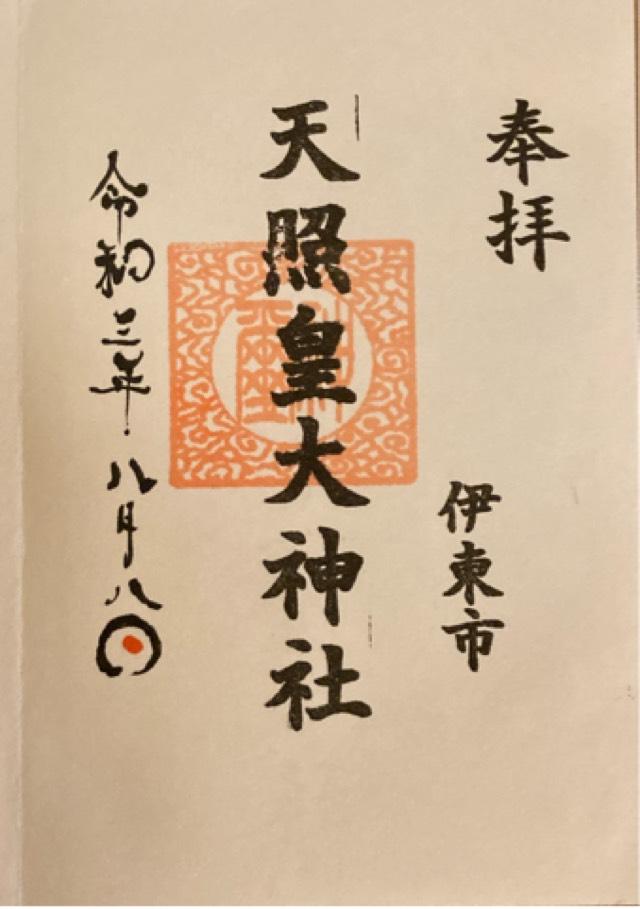 奉拝
伊東市
天照皇大神社
令和三年八月八